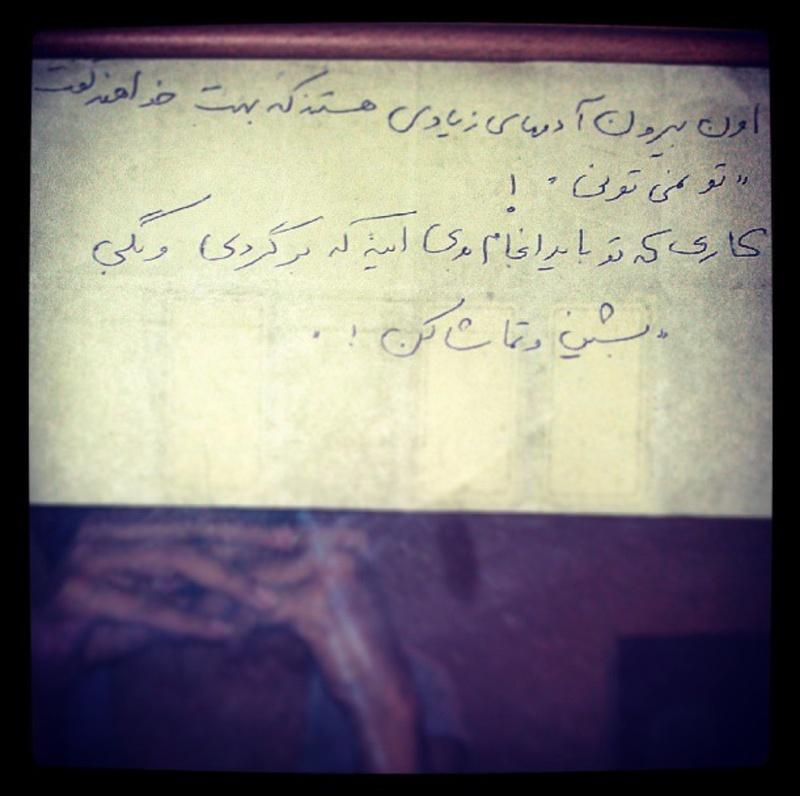 اون بیرون آدمهای زیادی هستند که بهت خواهند گفت
"تو نمی تونی" !
کاری که تو باید انجام بدی اینه که برگردی و بگی
"بشین و تماشا کن ! "